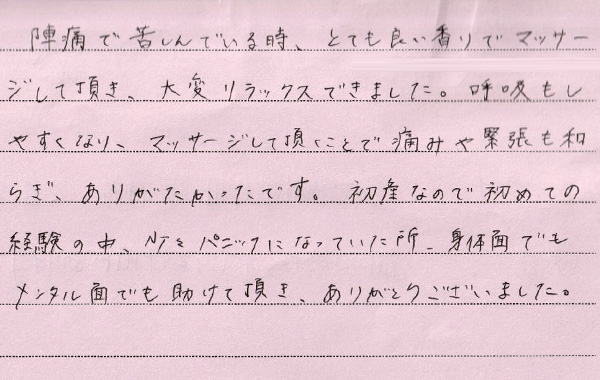 陣痛で苦しんでいる時、とても良い香りでマッサー
ジして頂き、大変リラックスできました。呼吸もし
やすくなり、マッサージして頂くことで痛みや緊張も和
らぎ、ありがたかったです。初産なので初めての
経験の中、パニックになっていた所、身体面でも
メンタル面でも助けて頂き、ありがとうございました。